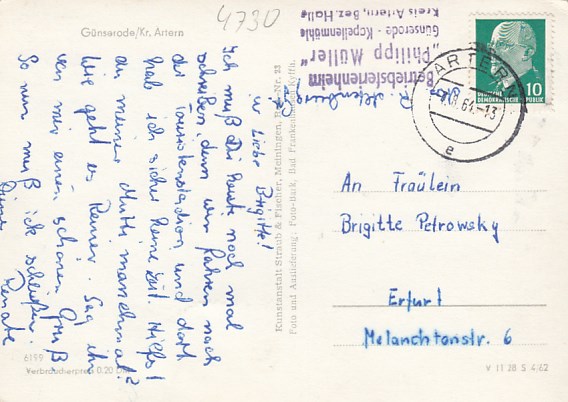 4730
Günserode/Kr. Artern
Betriebsferienheim
"Philipp Müller"
Günserode - Kapellenmühle
Kreis Artern, Bez. Halle
ARTERN
64.-13
e
10
DEUTSCHE
DEMOKRATISCHE REPUBLIK
Liebe Brigitte!
Ich muß Dir heute noch mal
schreiben, denn wir fahren nach
der Touristenstation und dort
hab ich sicher keine Zeit. Hilfst
du meiner Mutti manchmal?
Wie geht es Reiner. Sag ihr
von mir einen schönen Gruß.
So nun muß ich schließen.
Deine
Renate
Kunstanstalt Straub & Fischer, Meiningen,
Foto und Auslieferung: Foto-Bark, Bad Frankenhausen/Kyffh.
An Fräulein
Brigitte Petrowsky
Erfurt
Melanchtonstr. 6
6159
Verbraucherpreis 0.20 DM
V 11 28 S 4/62